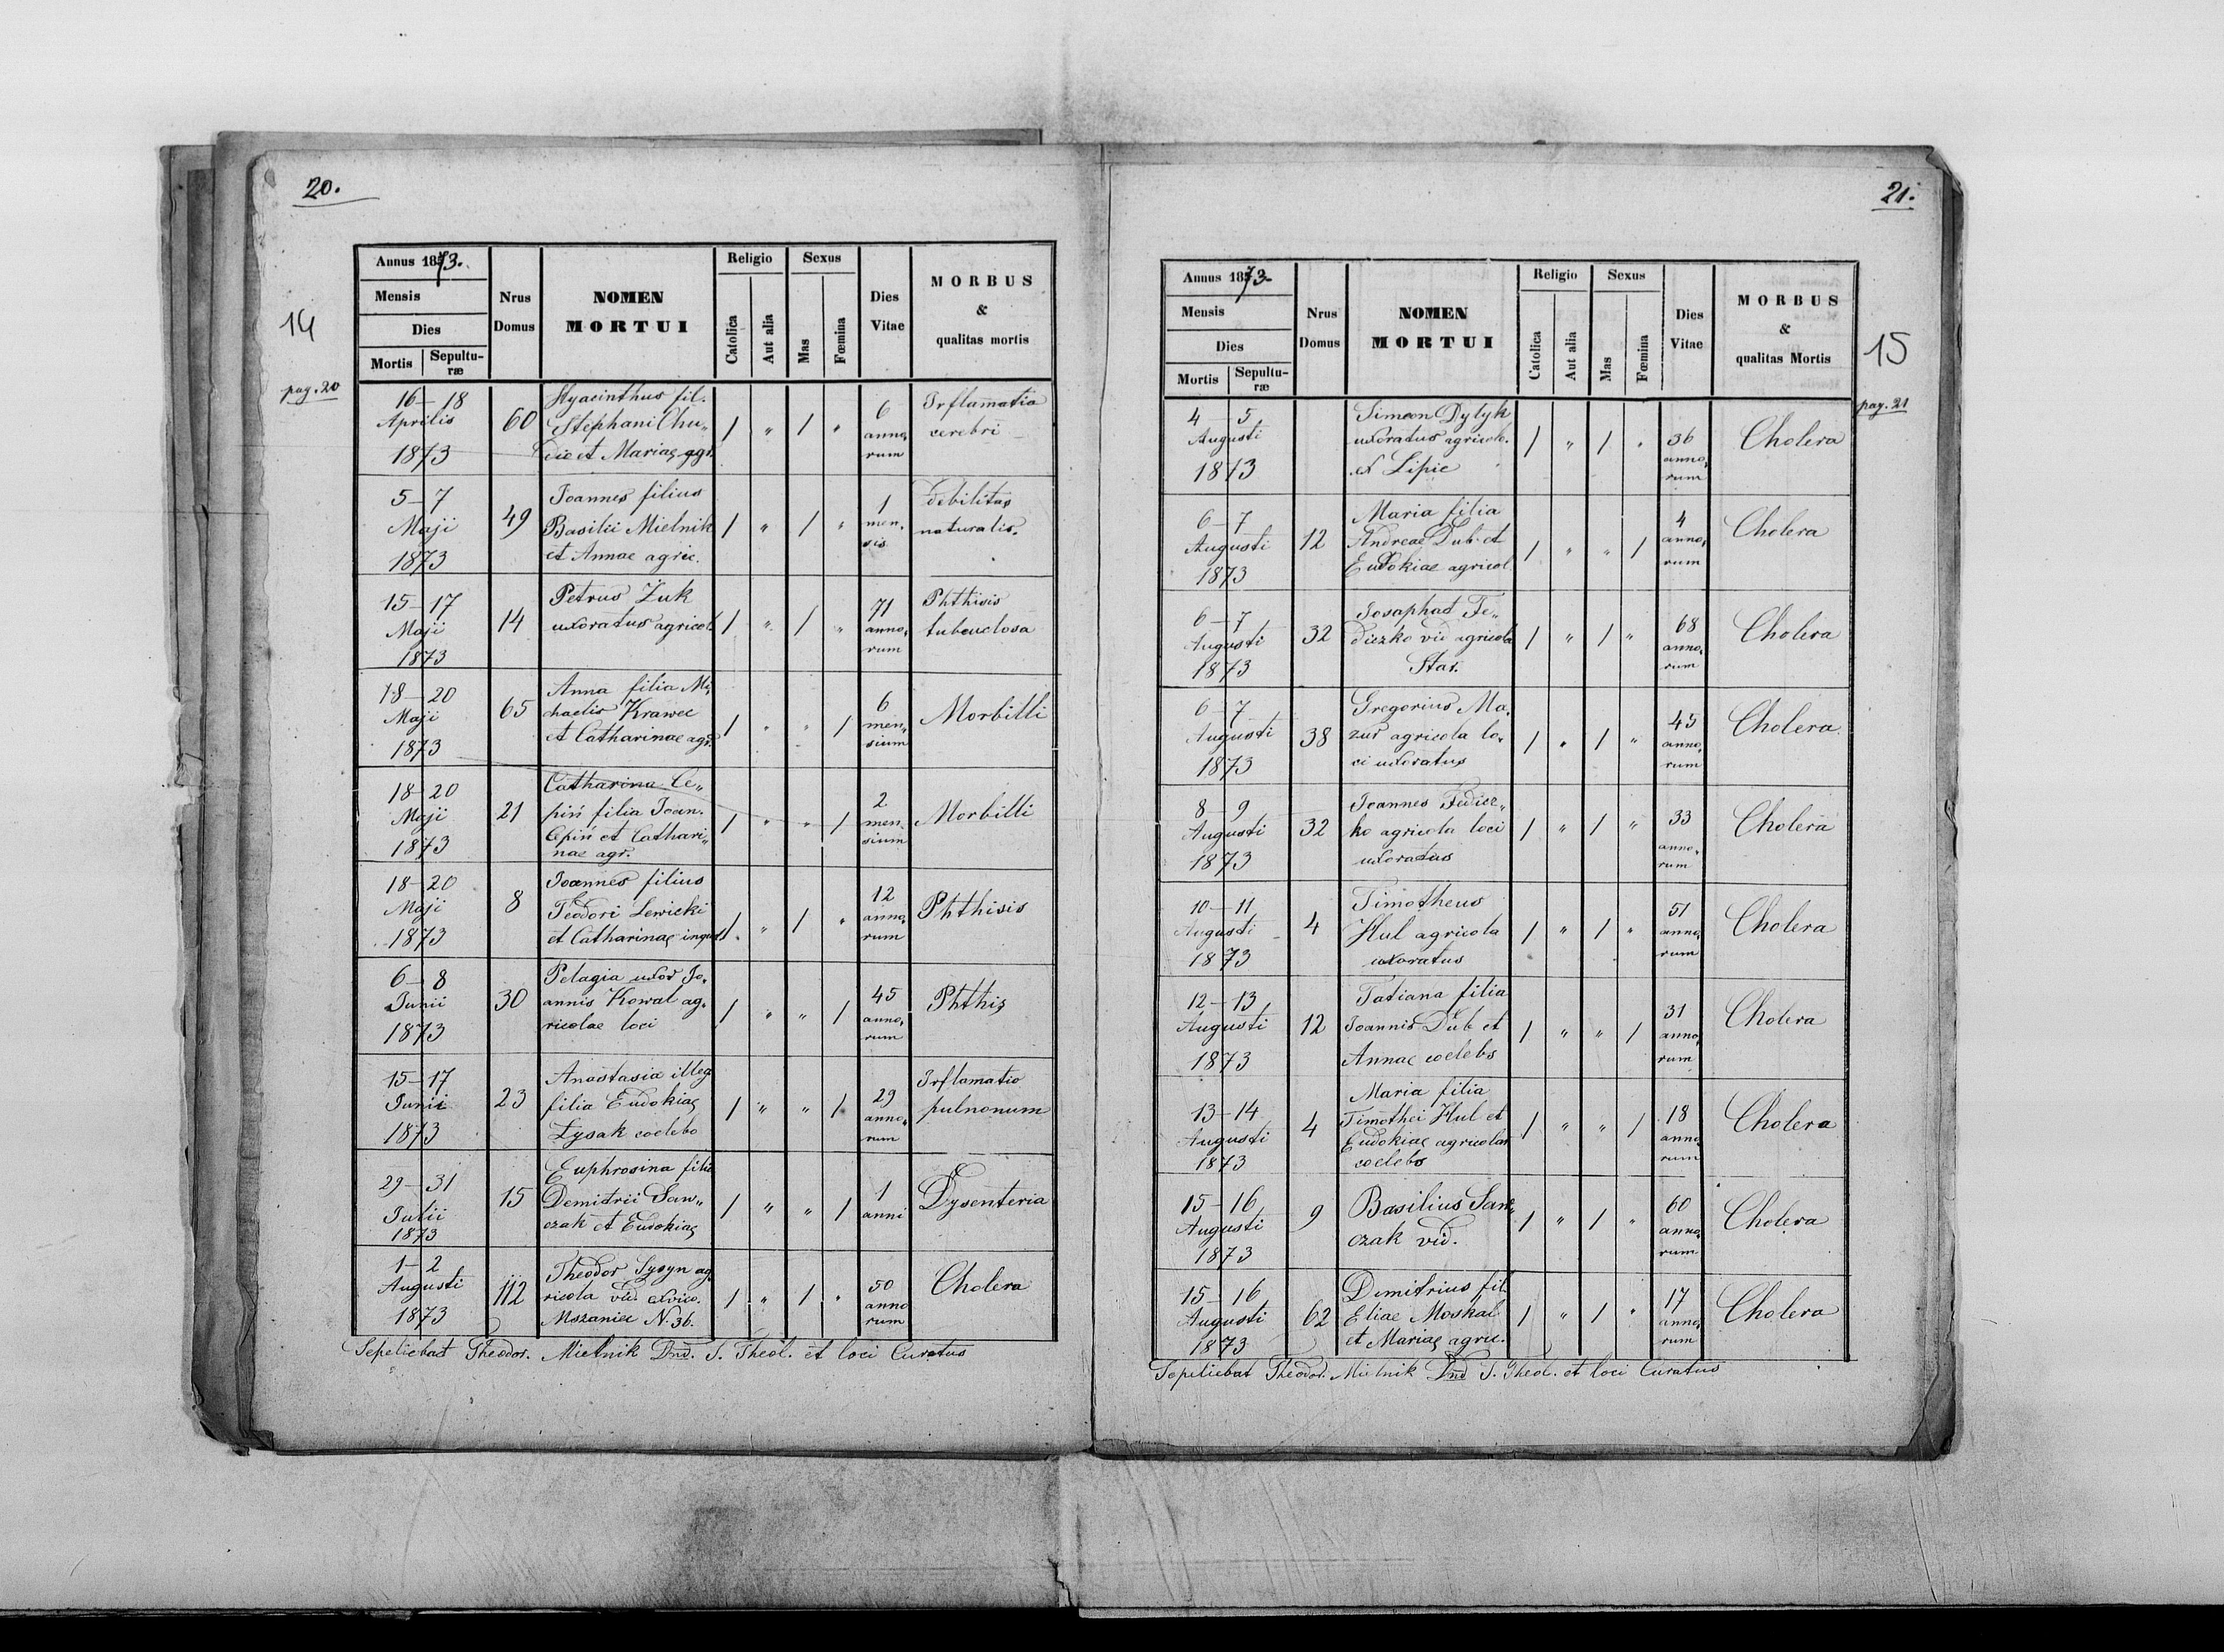 20.
14
pag. 20
Annus 1873.
Mensis
Dies
Mortis Sepulturæ
Nrus Domus
NOMEN MORTUI
Religio
Catolica
Aut alia
Sexus
Mas
Fœmina
Dies Vitae
MORBUS & qualitas mortis
16 – 18 Aprilis 1873
60
Hyacinthus fil.
Stephani Chu„
et Mariae agr.
1 " 1 "
6 annorum
Inflamatia
cerebri
5 – 7 Maji 1873
49
Joannes filius
Basilii Mielnik
et Annae agric.
1 " 1 "
1 mensis
debilitas
naturalis.
15 – 17 Maji 1873
14
Petrus Zuk
uxoratus agricol.
1 " 1 "
71 annorum
Phthisis
tuberclosa
18 – 20 Maji 1873
65
Anna filia Mi„
chaelis Krawec
et Catharinae agr.
1 " " 1
6 mensium
Morbilli
18 – 20 Maji 1873
21
Catharina Ce„
piń filia Joan.
Cepiń et Cathari„
nae agr.
1 " " 1
2 mensium
Morbilli
18 – 20 Maji 1873
8
Joannes filius
Teodori Lewicki
et Catharinae inqu.
1 " 1 "
12 annorum
Phthisis
6 – 8 Junii 1873
30
Pelagia uxor Jo„
annis Kowal ag„
ricolae loci
1 " " 1
45 annorum
Phthis
15 – 17 Junii 1873
23
Anastasia illeg
filia Eudokiae
Łysak coelebs
1 " " 1
29 annorum
Inflamatio
pulnonum
29 – 31 Julii 1873
15
Euphrosina filia
Demitrii Saw„
czak et Eudokiae
1 " " 1
1 anni
Dysenteria
1 – 2 Augusti 1873
112
Theodor Sysyn ag
ricola vid. ex vico.
Mszaniec N. 36.
1 " 1 "
50 annorum
Cholera
Sepeliebat Theodor. Mielnik Dnd. S. Theol. et loci Curatus
21.
15
pag. 21
Annus 1873
Mensis
Dies
Mortis Sepulturæ
Nrus Domus
NOMEN MORTUI
Religio
Catolica
Aut alia
Sexus
Mas
Fœmina
Dies Vitae
MORBUS & qualitas Mortis
4 – 5 Augusti 1873
Simeon Dytyk
uxoratus agricol.
ex Lipie
1 " 1 "
36 annorum
Cholera
6 – 7 Augusti 1873
12
Maria filia
Andreae Dub et
Eudokiae agricol.
1 " " 1
4 annorum
Cholera
6 – 7 Augusti 1873
32
Josaphat Fe„
diczko vid agricola
Star.
1 " 1 "
68 annorum
Cholera
6 – 7 Augusti 1873
38
Gregorius Ma„
zur agricola lo„
ci uxoratus
1 " 1 "
45 annorum
Cholera
8 – 9 Augusti 1873
32
Joannes Fedicz„
ko agricola loci
uxoratus
1 " 1 "
33 annorum
Cholera
10 – 11 Augusti 1873
4
Timotheus
Hul agricola
uxoratus
1 " 1 "
51 annorum
Cholera
12 – 13 Augusti 1873
12
Tatiana filia
Joannis Dub et
Annae coelebs
1 " " 1
31 annorum
Cholera
13 – 14 Augusti 1873
4
Maria filia
Timothei Hul et
Eudokiae agricolar
coelebs
1 " " 1
18 annorum
Cholera
15 – 16 Augusti 1873
9
Basilius Saw„
czak vid.
1 " 1 "
60 annorum
Cholera
15 – 16 Augusti 1873
62
Demitrius fil.
Eliae Moskal
et Mariae agric.
1 " 1 "
17 annorum
Cholera
Sepeliebat Theodor. Mielnik Dnd S. Theol. et loci Curatus